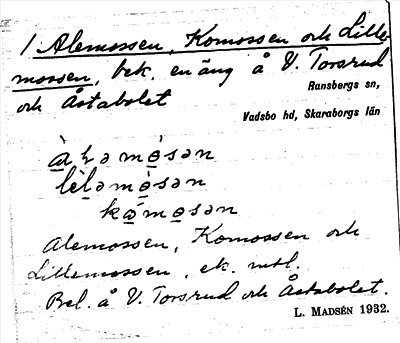 1 Alemossen, Komossen och Lille
mossen, bek. en äng å V. Torsrud
och Åstabolet
Ransbergs sn,
Vadsbo hd, Skaraborgs län
lèləmò̱sən
kò̱mo̱sən
Alemossen, Komossen och
Lillemossen, ek. mtl.
Bel. å V. Torsrud och Åstabolet.
L. MADSÉN 1932.